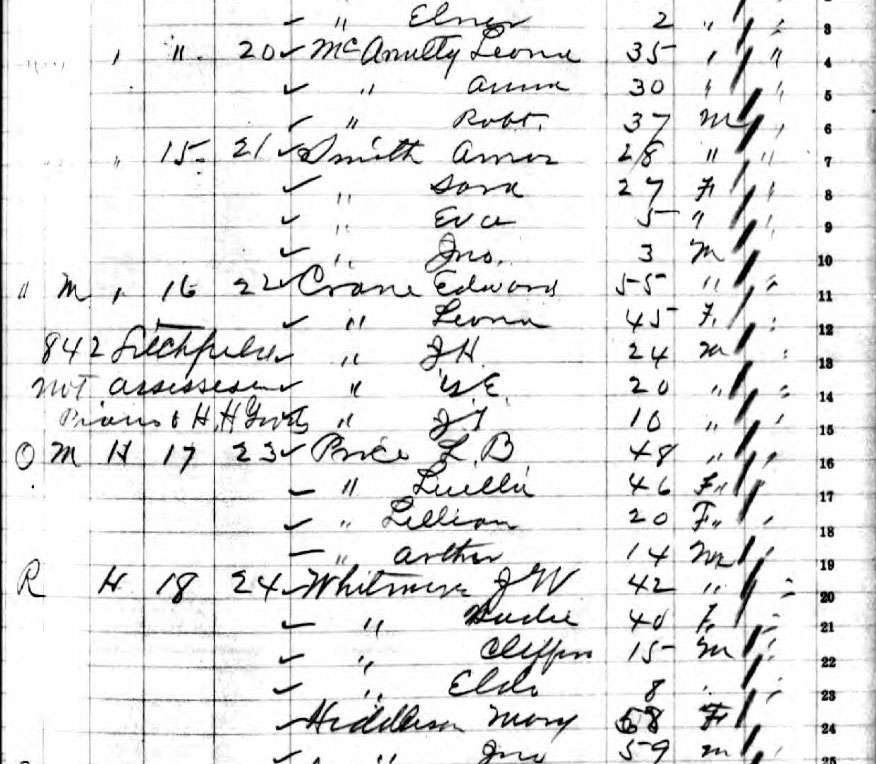 " Elmer 2 " 3
" 20 McAnulty Leona 35 " " 4
" Anna 30 " " 5
" Robt. 37 M 6
" 15 21 Smith Amos 28 " " 7
" Sara 27 F " 8
" Eva 5 " " 9
" Jno. 3 M 10
" M " 16 22 Crane Edward 55 " " 11
" Leona 45 F. " 12
842 " J H 24 M " 13
not " E. 20 " " 14
Piano & H.H. Goods " J 10 " " 15
O M H 17 23 Price L. B 48 " " 16
" Luella 46 F " 17
" Lillian 20 F " 18
" Arther 14 M " 19
R H 18 24 J W 42 " " 20
" 40 F. " 21
" 15 M " 22
" 8 " " 23
Mary 68 F 24
" Jno 59 M 25